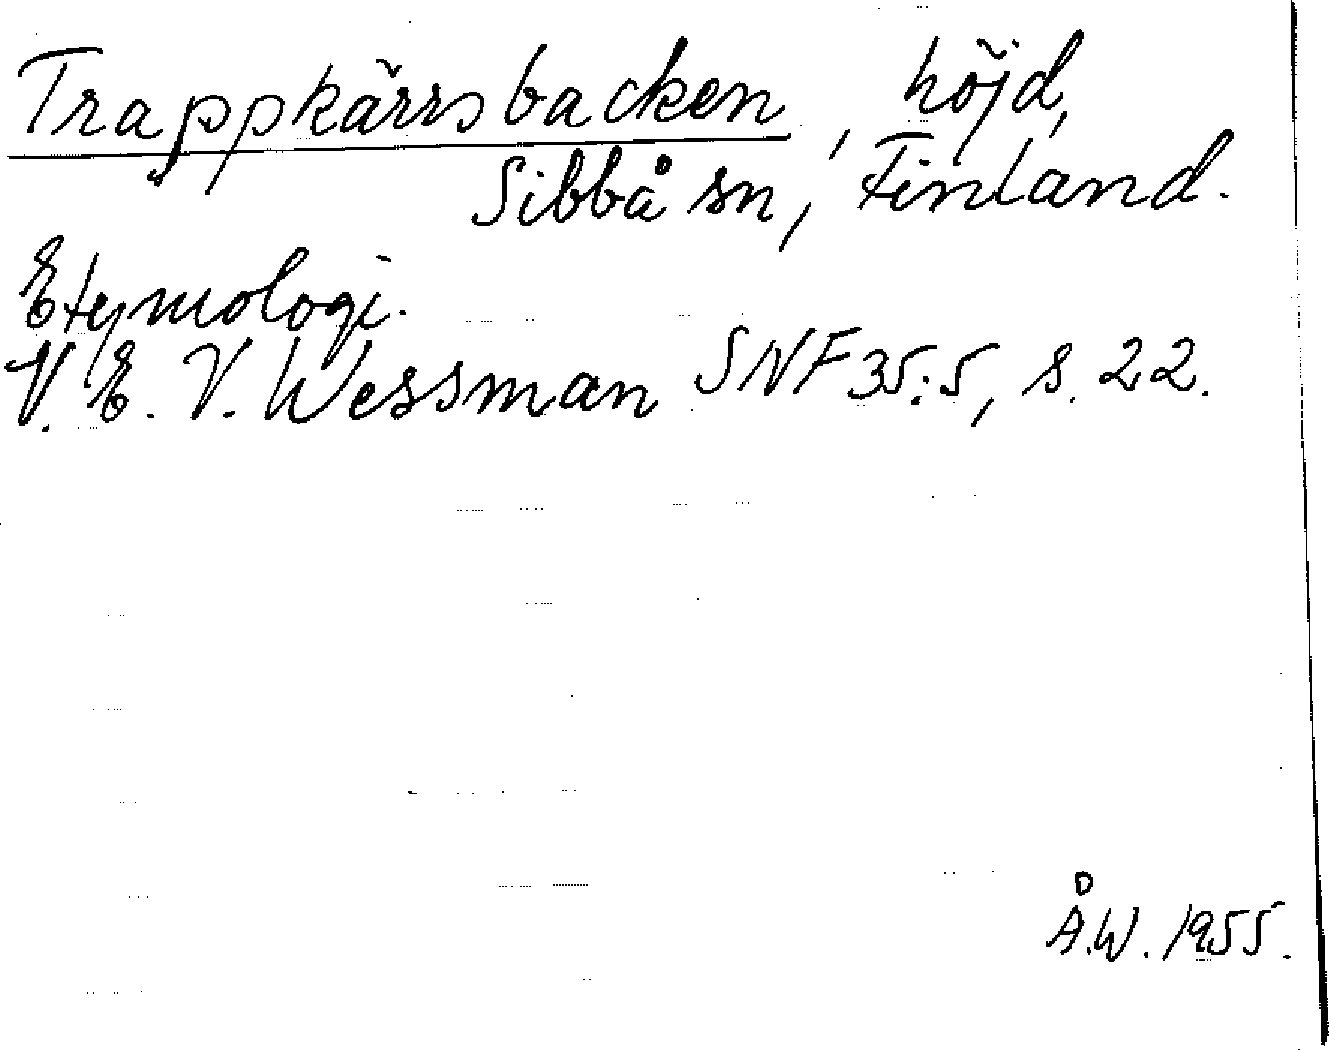 Trappkärrsbacken, höjd,
Sibbå sn, Finland.
Etymologi.
V. E. V. Wessman SNF 35:5, s. 22.
Å.W. 1955.